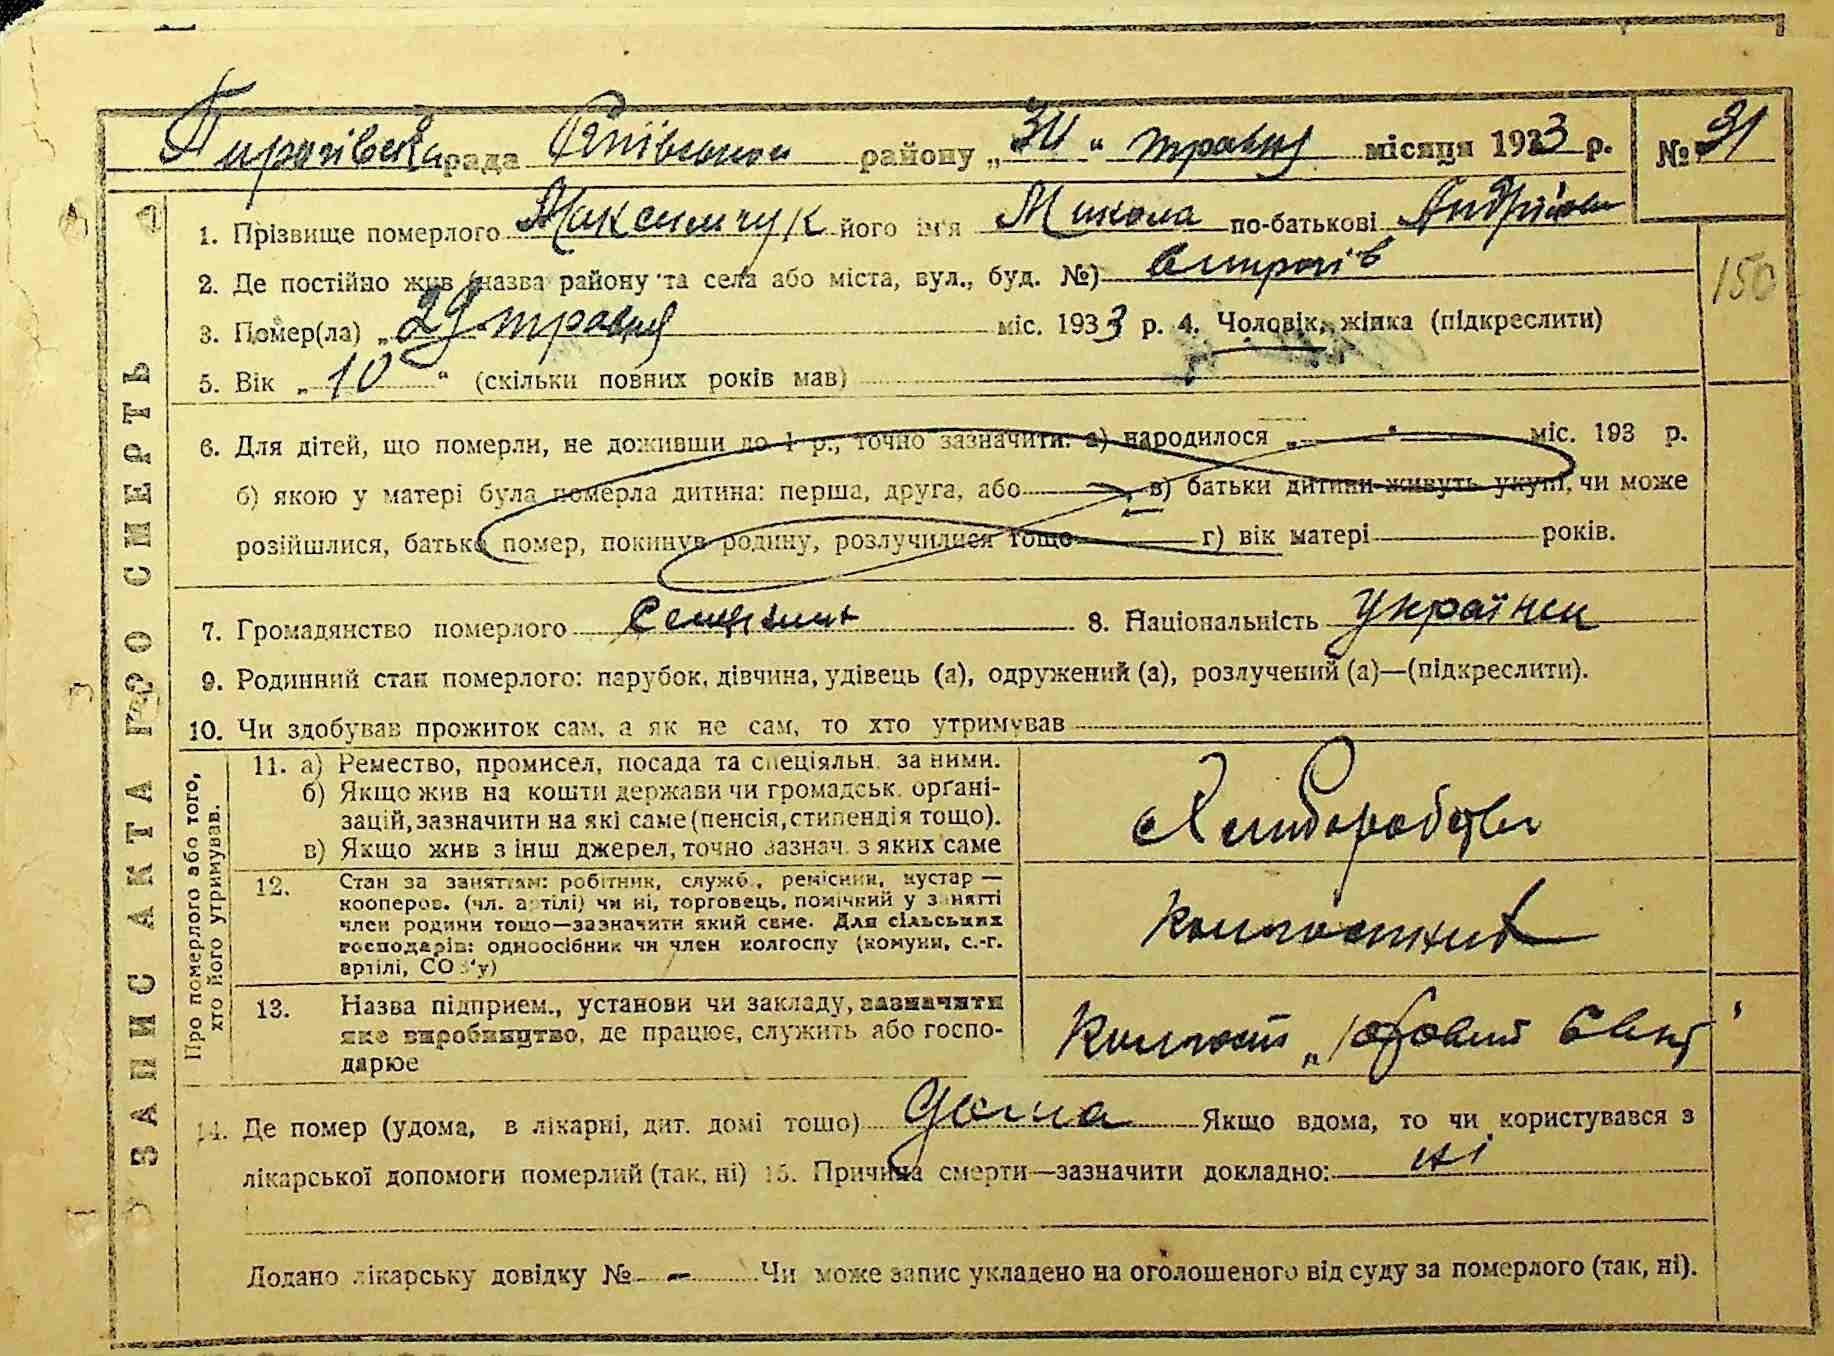 Пирогівська рада Київського району „30“ травня місяця 1933 р. № 91
1. Прізвище померлого Максимчук його ім'я Микола по-батькові Андрійов
2. Де постійно жив (назва району та села або міста, вул., буд. №) с Пирогів
150
3. Помер(ла) „29 травня міс. 1933 р. 4. Чоловік, жінка (підкреслити)
5. Вік „10“ (скільки повних років мав)
6. Для дітей, що померли, не доживши до 1 р., точно зазначити: а) народилося „ “ міс. 193 р.
б) якою у матері була померла дитина: перша, друга, або , в) батьки дитини живуть укупі, чи може
розійшлися, батько помер, покинув родину, розлучилися тощо г) вік матері років.
7. Громадянство померлого 8. Національність Українец
9. Родинний стан померлого: парубок, дівчина, удівець (а), одружений (а), розлучений (а)—(підкреслити).
10. Чи здобував прожиток сам, а як не сам, то хто утримував
ЗАПИС АКТА ПРО СМЕРТЬ
Про померлого або того,
хто його утримував.
11. а) Ремество, промисел, посада та спеціяльн. за ними.
б) Якщо жив на кошти держави чи громадськ. орґані-
зацій, зазначити на які саме (пенсія, стипендія тощо).
в) Якщо жив з інш джерел, точно зазнач. з яких саме
Хліборобство
12. Стан за заняттям: робітник, служб., ремісник, кустар —
кооперов. (чл. артілі) чи ні, торговець, помічний у занятті
член родини тощо—зазначити який саме. Для сільських
господарів: одноосібник чи член колгоспу (комуни, с.-г.
артілі, СОЗ'у)
колгоспник
13. Назва підприєм., установи чи закладу, зазначити
яке виробництво, де працює, служить або госпо-
дарює
Колгосп
14. Де помер (удома, в лікарні, дит. домі тощо) удома Якщо вдома, то чи користувався з
лікарської допомоги померлий (так, ні) 15. Причина смерти—зазначити докладно: ні
Додано лікарську довідку № - Чи може запис укладено на оголошеного від суду за померлого (так, ні).